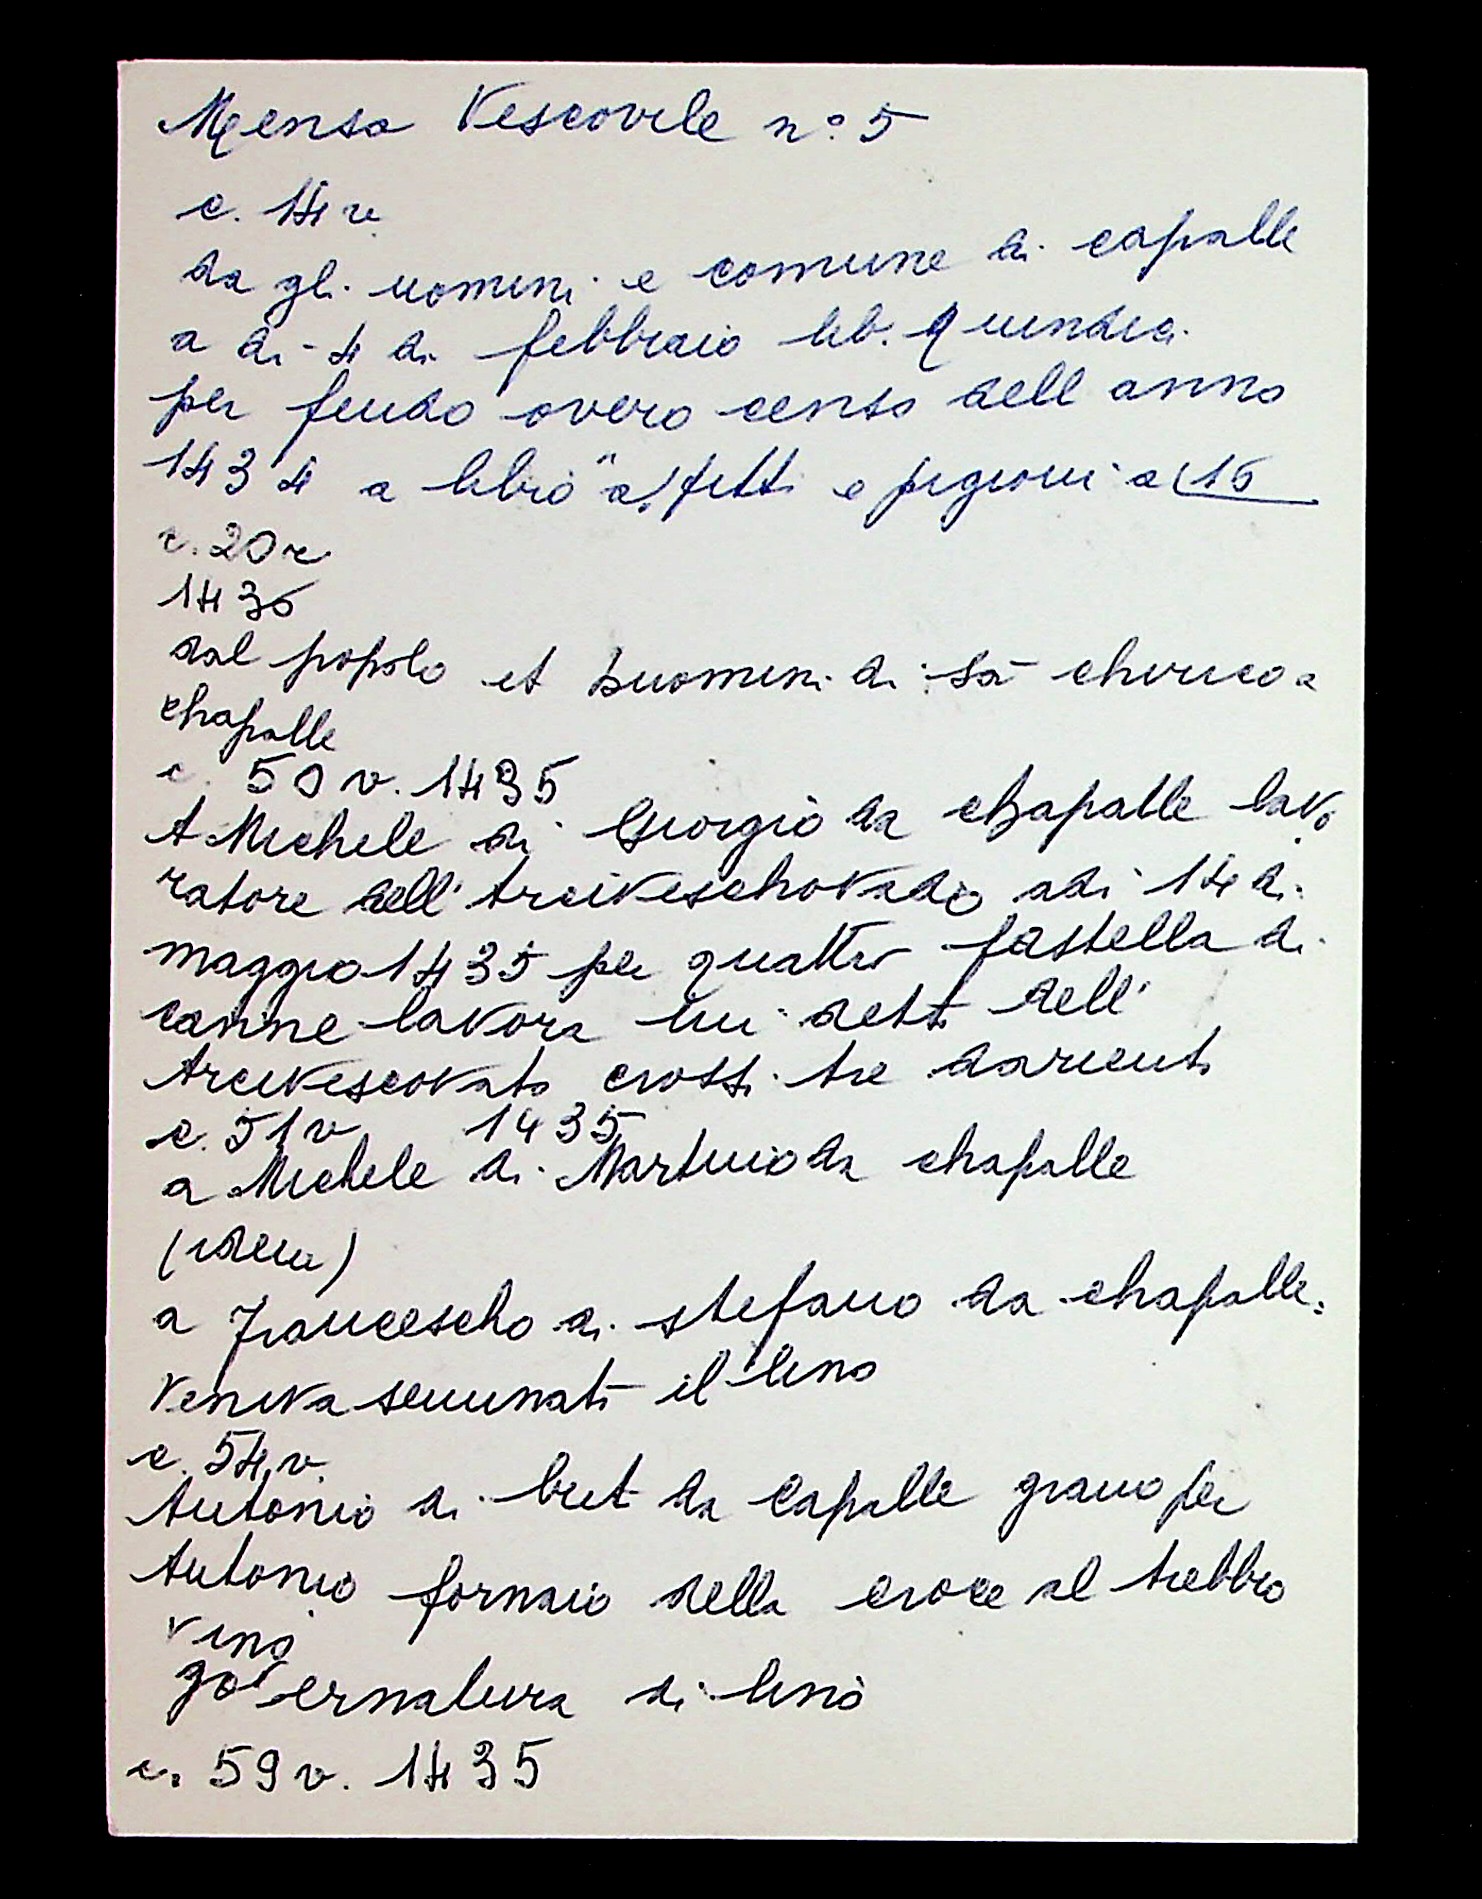 Mensa Vescovile n° 5
c. 14 v.
da gli uomini e comune di capalle
a di 4 di febbraio lib. quindici
per feudo overo censo dell anno
1434 a libro "a" fitti e pigioni a 16
c. 20 r
1436
dal popolo et huomini di sā chirico a
chapalle
c. 50 v. 1435
A Michele di Giorgio da chapalle lavo
ratore dell'Arciveschovado adi 14 di
maggio 1435 per quattro fastella di
canne lavora lui detti dell'
Arcivescovato grossi tre darienti
c. 51 v 1435
a Michele di Martino da chapalle
(idem)
a Francescho di stefano da chapalle:
veniva seminato il lino
c. 54 v.
Antonio di but da Capalle grano per
Antonio fornaio della croce al trebbio
vino
governatura di lino
c. 59 v. 1435